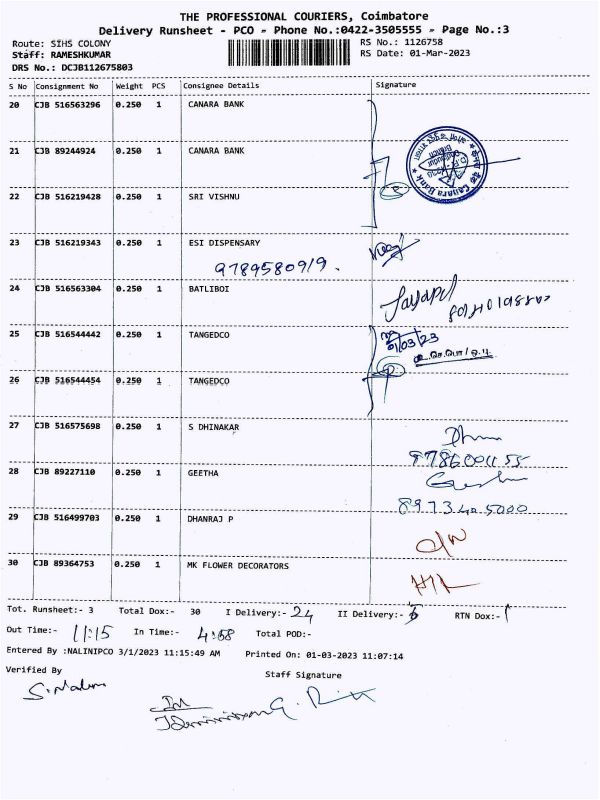 THE PROFESSIONAL COURIERS, Coimbatore
Delivery Runsheet - PCO - Phone No.:0422-3505555 - Page No.:3
Route: SIHS COLONY RS No.: 1126758
Staff: RAMESHKUMAR RS Date: 01-Mar-2023
DRS No.: DCJB112675803
S No Consignment No Weight PCS Consignee Details Signature
20 CJB 516563296 0.250 1 CANARA BANK
21 CJB 89244924 0.250 1 CANARA BANK
Canara Bank
22 CJB 516219428 0.250 1 SRI VISHNU
23 CJB 516219343 0.250 1 ESI DISPENSARY
9789580919.
24 CJB 516563304 0.250 1 BATLIBOI
25 CJB 516544442 0.250 1 TANGEDCO
01/03/23
26 CJB 516544454 0.250 1 TANGEDCO
27 CJB 516575698 0.250 1 S DHINAKAR
28 CJB 89227110 0.250 1 GEETHA
8973405000
29 CJB 516499703 0.250 1 DHANRAJ P
O/W
30 CJB 89364753 0.250 1 MK FLOWER DECORATORS
Tot. Runsheet:- 3 Total Dox:- 30 I Delivery:- 24 II Delivery:- RTN Dox:-
Out Time:- 11:15 In Time:- 4:58 Total POD:-
Entered By :NALINIPCO 3/1/2023 11:15:49 AM Printed On: 01-03-2023 11:07:14
Verified By Staff Signature